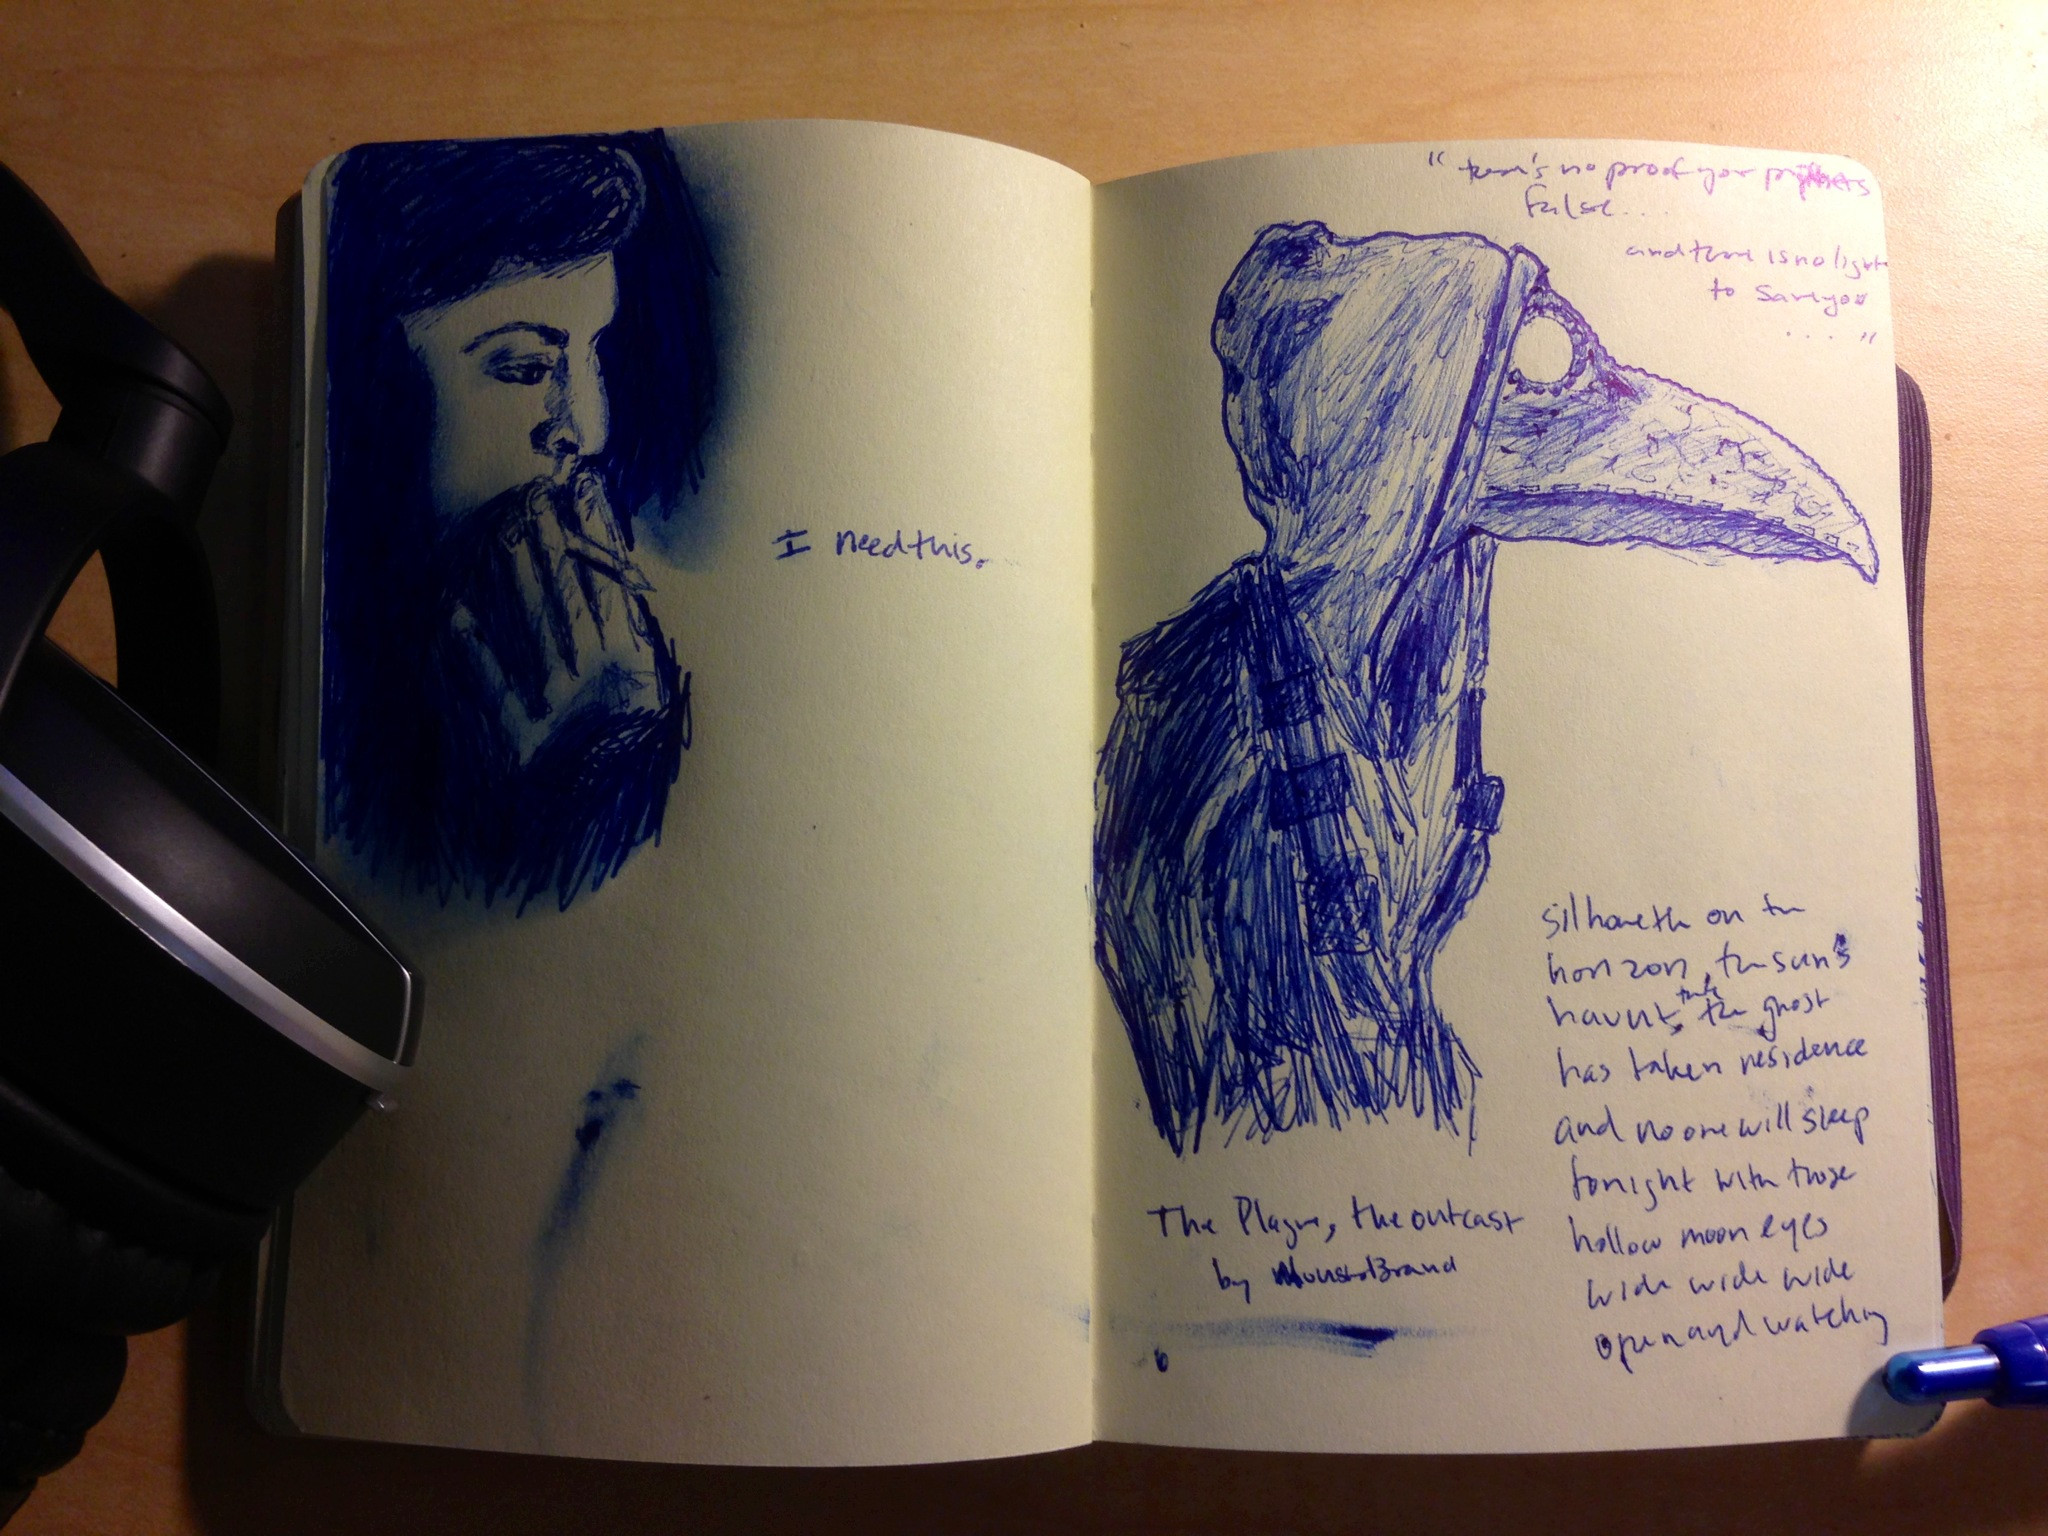 I need this.
" there's no proof your prophets
false....
and there is no light
to save you
.... "
silhouette on the
horizon, the sun's
haunt, the ghost
has taken residence
and no one will sleep
tonight with those
hollow moon eyes
wide wide wide
open and watching
The Plague, the outcast
by MonsterBrand
6